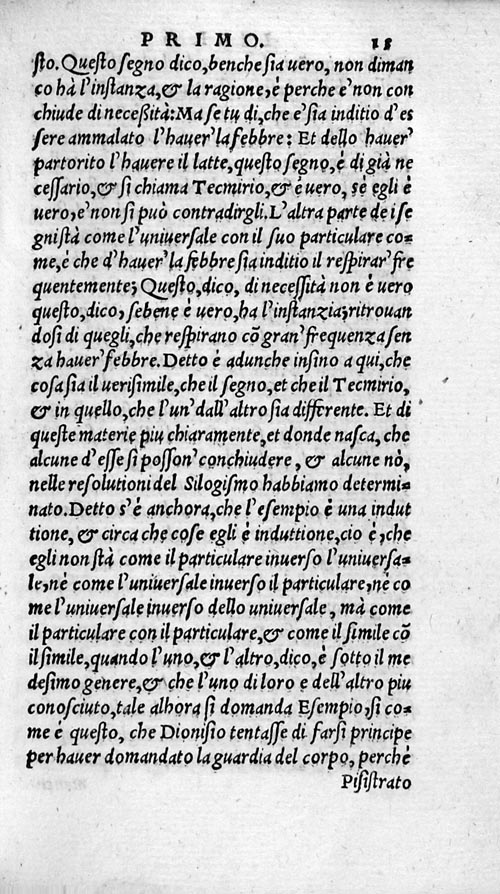 PRIMO. 15
sto. Questo segno dico, benche sia vero, non diman
co hà l'instanza, & la ragione, é perche e' non con
chiude di neceßità: Ma se tu di, che e' sia inditio d'es
sere ammalato l'hauer' la febbre: Et dello hauer'
partorito l'hauere il latte, questo segno, é di già ne
cessario, & si chiama Tecmirio, & é vero, sé egli é
vero, e' non si può contradirgli. L'altra parte de i se
gnistà come l'uniuersale con il suo particulare co=
me, é che d'hauer' la febbre sia inditio il respirar' fre
quentemente; Questo, dico, di necessità non é vero
questo, dico, sebene é vero, ha l'instanzia; ritrouan
dosi di quegli, che respirano cō gran' frequenza sen
za hauer' febbre. Detto é adunche insino a qui, che
cosa sia il uerisimile, che il segno, et che il Tecmirio,
& in quello, che l'un' dall'altro sia differente. Et di
queste materie piu chiaramente, et donde nasca, che
alcune d'esse si posson' conchiudere, & alcune nò,
nelle resolutioni del Silogismo habbiamo determi=
nato. Detto s'é anchora, che l'esempio é una indut
tione, & circa che cose egli é induttione, cio é, che
egli non stà come il particulare inuerso l'uniuersa=
le, né come l'uniuersale inuerso il particulare, né co
me l'uniuersale inuerso dello uniuersale, mà come
il particulare con il particulare, & come il simile cō
il simile, quando l'uno, & l'altro, dico, é sotto il me
desimo genere, & che l'uno di loro e dell'altro piu
conosciuto, tale alhora si domanda Esempio, si co=
me é questo, che Dionisio tentasse di farsi principe
per hauer domandato la guardia del corpo, perché
Pisistrato